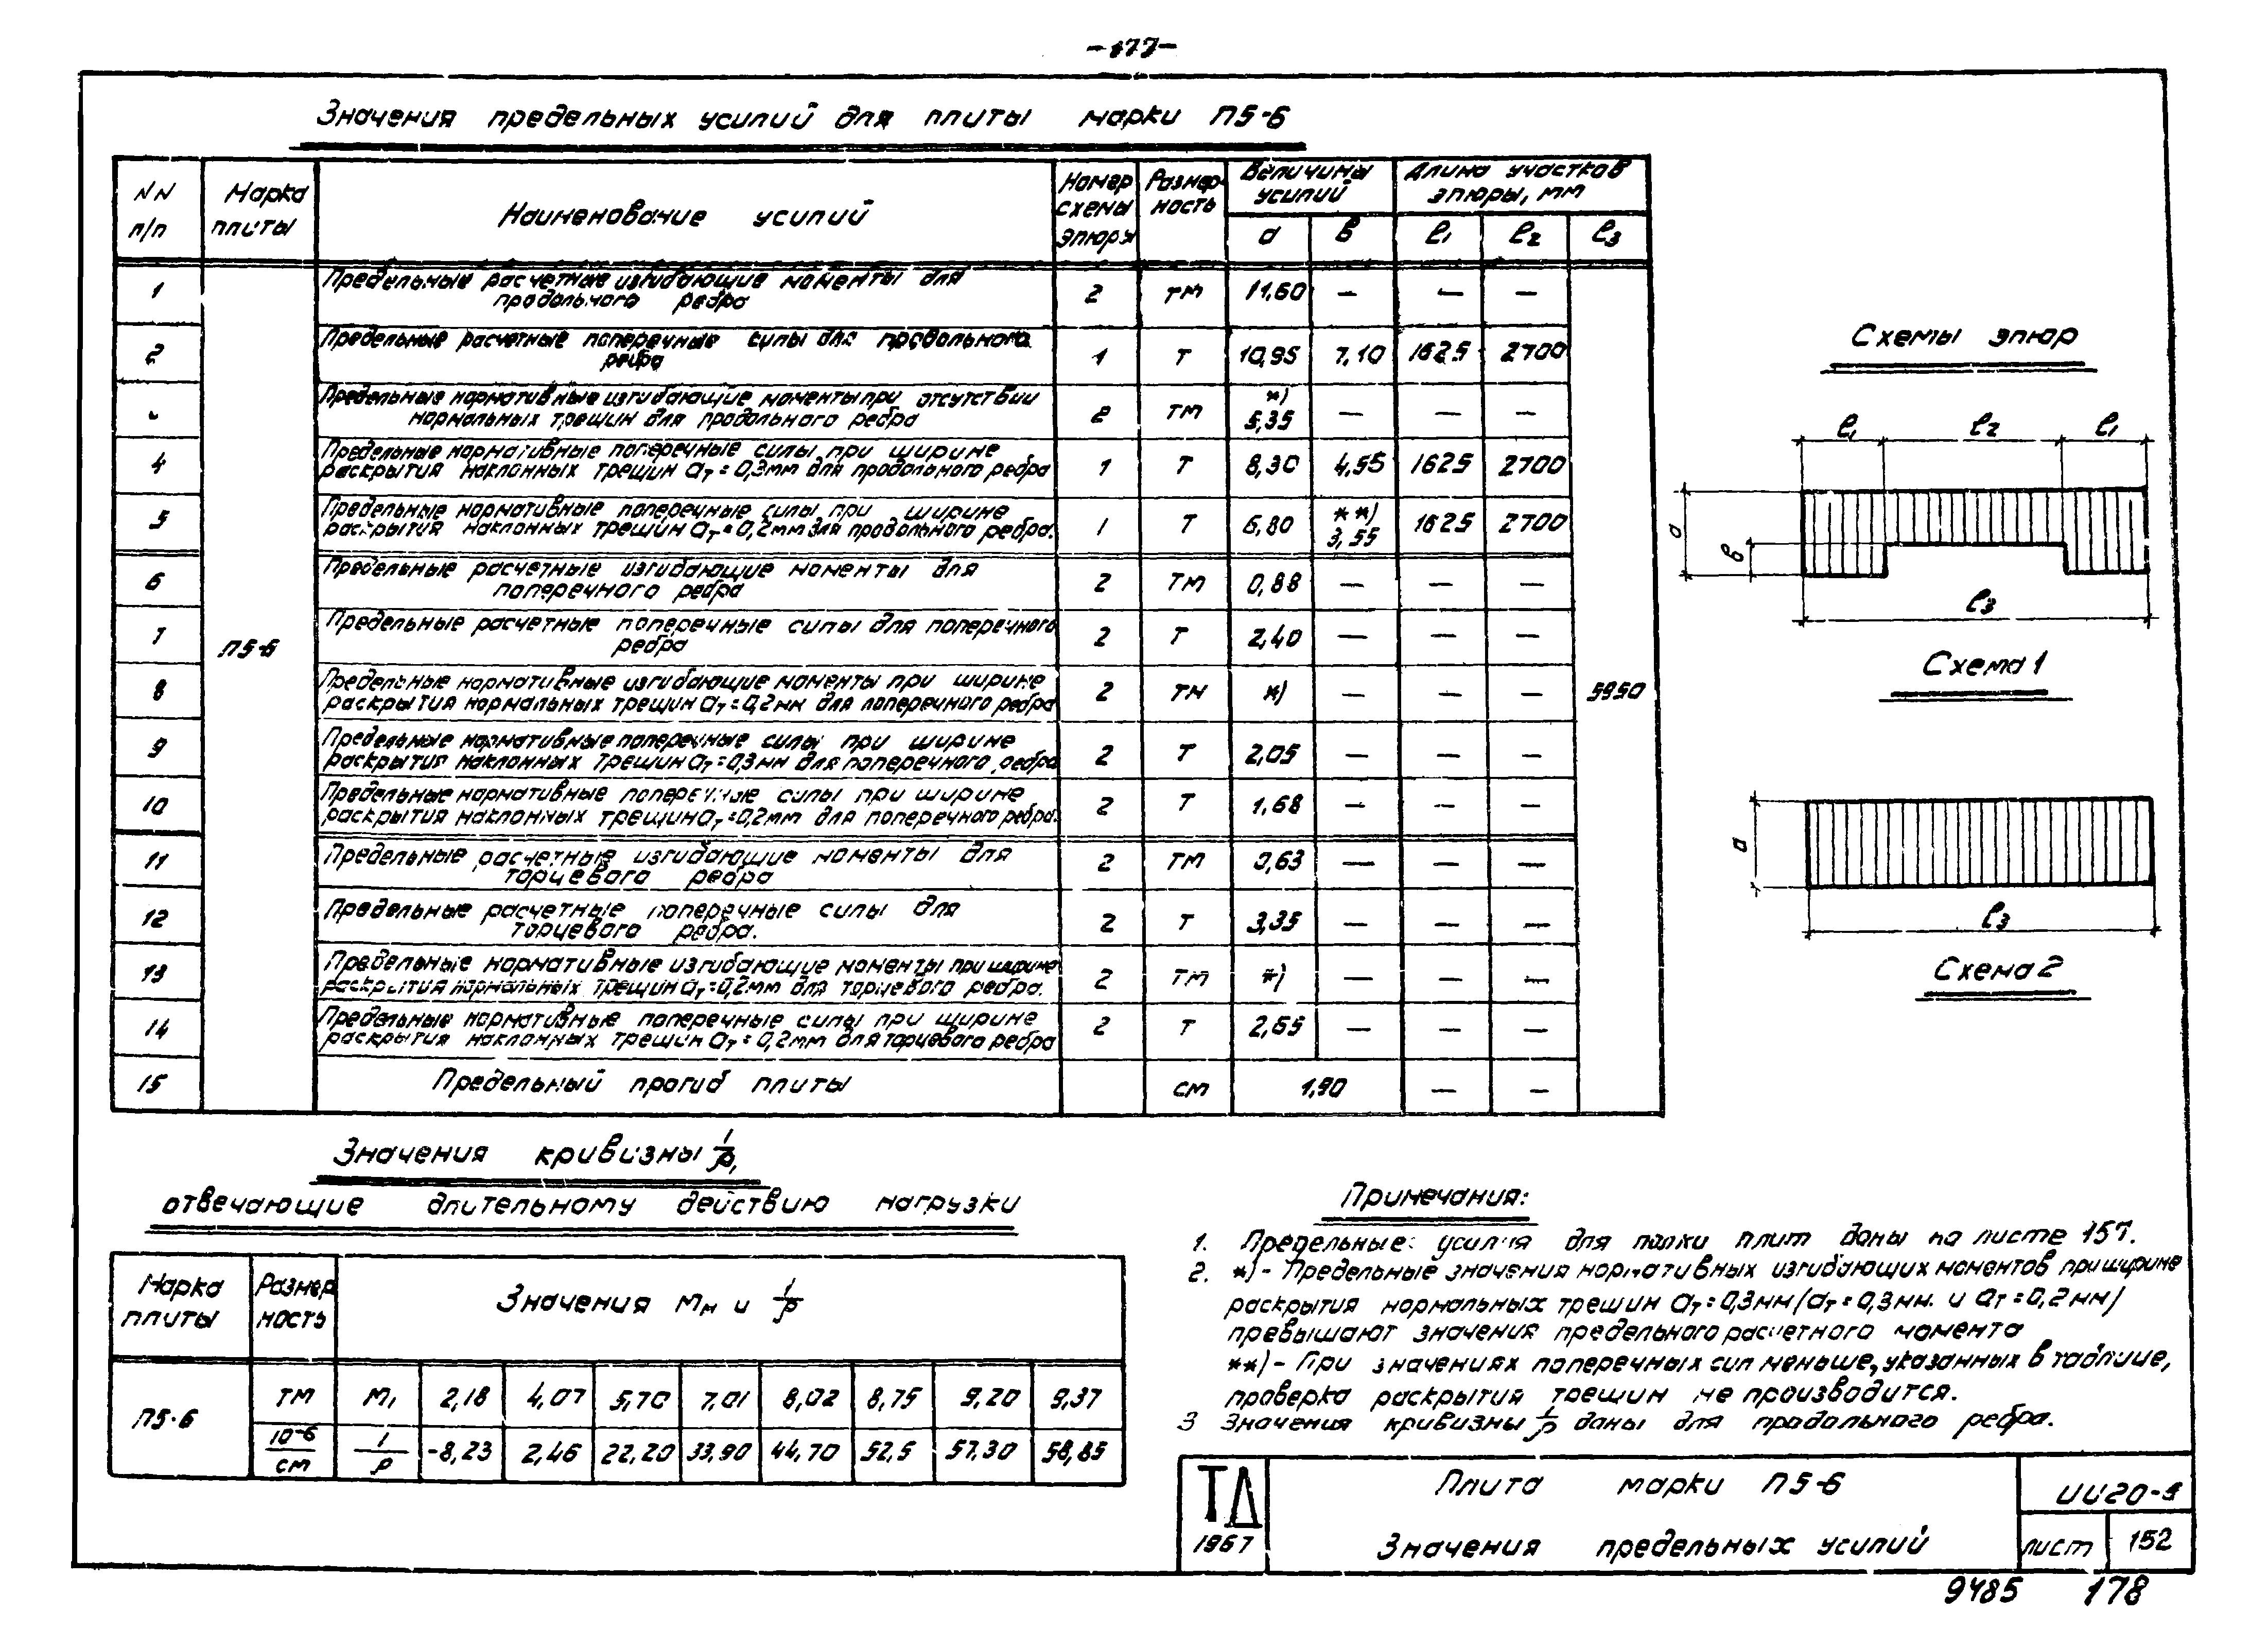 -177-
Значения предельных усилий для плиты марки П5-6
NN п/п | Марка плиты | Наименование усилий | Номер схемы эпюры | Размерность | Величины усилий | Длина участков эпюры, мм
а | в | ℓ₁ | ℓ₂ | ℓ₃
1 | Предельные расчетные изгибающие моменты для | 2 | тм | 11,60 | — | — | —
продольного ребра
2 | Предельные расчетные поперечные силы для продольного | 1 | Т | 10,95 | 7,10 | 1625 | 2700
ребра
Предельные нормативные изгибающие моменты при отсутствии | 2 | ТМ | *) 5,35 | — | — | —
нормальных трещин для продольного ребра
4 | Предельные нормативные поперечные силы при ширине | 1 | Т | 8,30 | 4,55 | 1625 | 2700
раскрытия наклонных трещин aт = 0,3мм для продольного ребра
5 | Предельные нормативные поперечные силы при ширине | 1 | Т | 6,80 | **) 3,55 | 1625 | 2700
раскрытия наклонных трещин aт = 0,2мм для продольного ребра.
6 | Предельные расчетные изгибающие моменты для | 2 | ТМ | 0,88 | — | — | —
поперечного ребра
7 | Предельные расчетные поперечные силы для поперечного | 2 | Т | 2,40 | — | — | —
ребра
П5-6
8 | Предельные нормативные изгибающие моменты при ширине | 2 | ТМ | *) | — | — | — | 5950
раскрытия нормальных трещин aт = 0,2мм для поперечного ребра
9 | Предельные нормативные поперечные силы при ширине | 2 | Т | 2,05 | — | — | —
раскрытия наклонных трещин aт = 0,3мм для поперечного ребра
10 | Предельные нормативные поперечные силы при ширине | 2 | Т | 1,68 | — | — | —
раскрытия наклонных трещин aт = 0,2мм для поперечного ребра.
11 | Предельные расчетные изгибающие моменты для | 2 | ТМ | 0,63 | — | — | —
торцевого ребра
12 | Предельные расчетные поперечные силы для | 2 | Т | 3,35 | — | — | —
торцевого ребра.
13 | Предельные нормативные изгибающие моменты при ширине | 2 | ТМ | *) | — | — | —
раскрытия нормальных трещин aт = 0,2мм для торцевого ребра.
14 | Предельные нормативные поперечные силы при ширине | 2 | Т | 2,65 | — | — | —
раскрытия наклонных трещин aт = 0,2мм для торцевого ребра
15 | Предельный прогиб плиты | см | 1,90 | — | —
Схемы эпюр
ℓ₁ ℓ₂ ℓ₁
а
в
ℓ₃
Схема 1
а
ℓ₃
Схема 2
Значения кривизны 1/ρ,
отвечающие длительному действию нагрузки
Марка плиты | Размерность | Значения Мн и 1/ρ
П5-6 | ТМ | М₁ | 2,18 | 4,07 | 5,70 | 7,01 | 8,02 | 8,75 | 9,20 | 9,37
10⁻⁶/см | 1/ρ | -8,23 | 2,46 | 22,20 | 33,90 | 44,70 | 52,5 | 57,30 | 58,85
Примечания:
1. Предельные усилия для полки плит даны на листе 157.
2. *) - Предельные значения нормативных изгибающих моментов при ширине
раскрытия нормальных трещин aт = 0,3мм /aт = 0,3мм. и aт = 0,2мм/
превышают значения предельного расчетного момента
**) - При значениях поперечных сил меньше, указанных в таблице,
проверка раскрытия трещин не производится.
3 Значения кривизны 1/ρ даны для продольного ребра.
ТД
1967
Плита марки П5-6
Значения предельных усилий
лист 152
9485 178